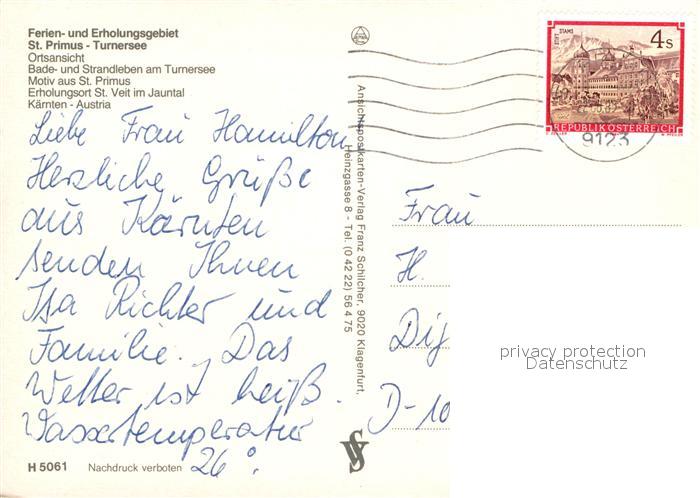 Ferien- und Erholungsgebiet
St. Primus - Turnersee
Ortsansicht
Bade- und Strandleben am Turnersee
Motiv aus St. Primus
Erholungsort St. Veit im Jauntal
Kärnten - Austria
Liebe Frau Hamilton
Herzliche Grüße
aus Kärnten
senden Ihnen
Isa Richter und
Familie. Das
Wetter ist heiß.
Wassertemperatur
26°.
H 5061 Nachdruck verboten
Ansichtspostkarten-Verlag Franz Schilcher, 9020 Klagenfurt,
Heinzgasse 8 - Tel. (0 42 22) 56 4 75
STIFT STAMS
4 s
REPUBLIK ÖSTERREICH
9123
Frau
H.
Dij
D-10
privacy protection
Datenschutz